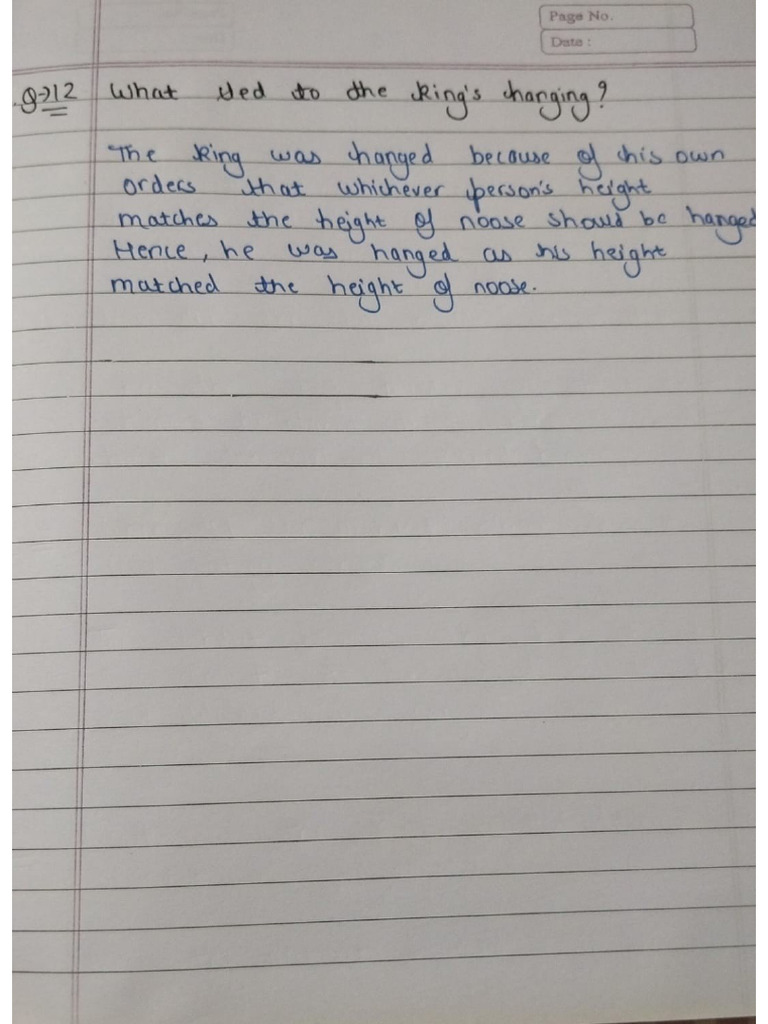 Page No.
Date :
Q→12 What led to the king's hanging?
The king was hanged because of his own
orders that whichever person's height
matches the height of noose should be hanged
Hence, he was hanged as his height
matched the height of noose.